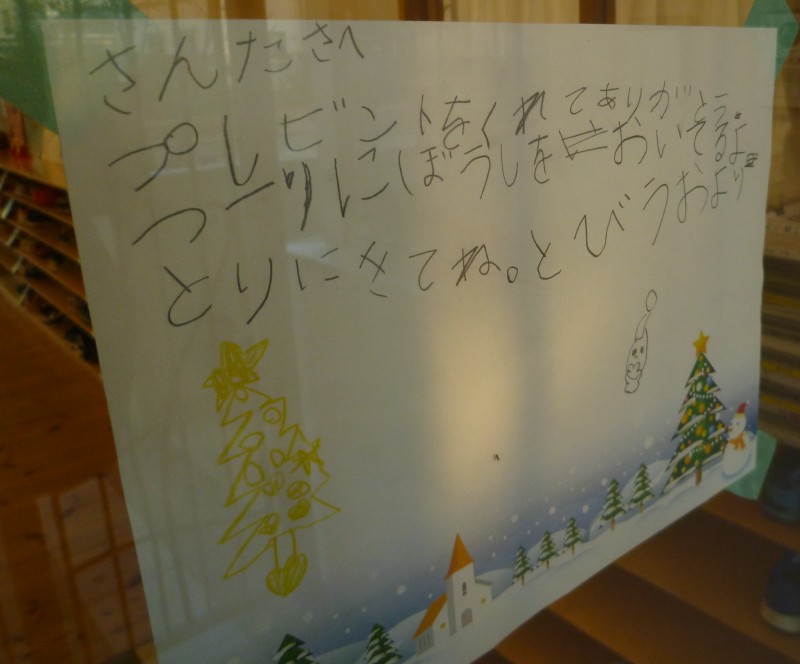 さんたさへ
プレゼントをくれてありがとう
つーりにぼうしをおいてるよ
とりにきてね。とびうおより